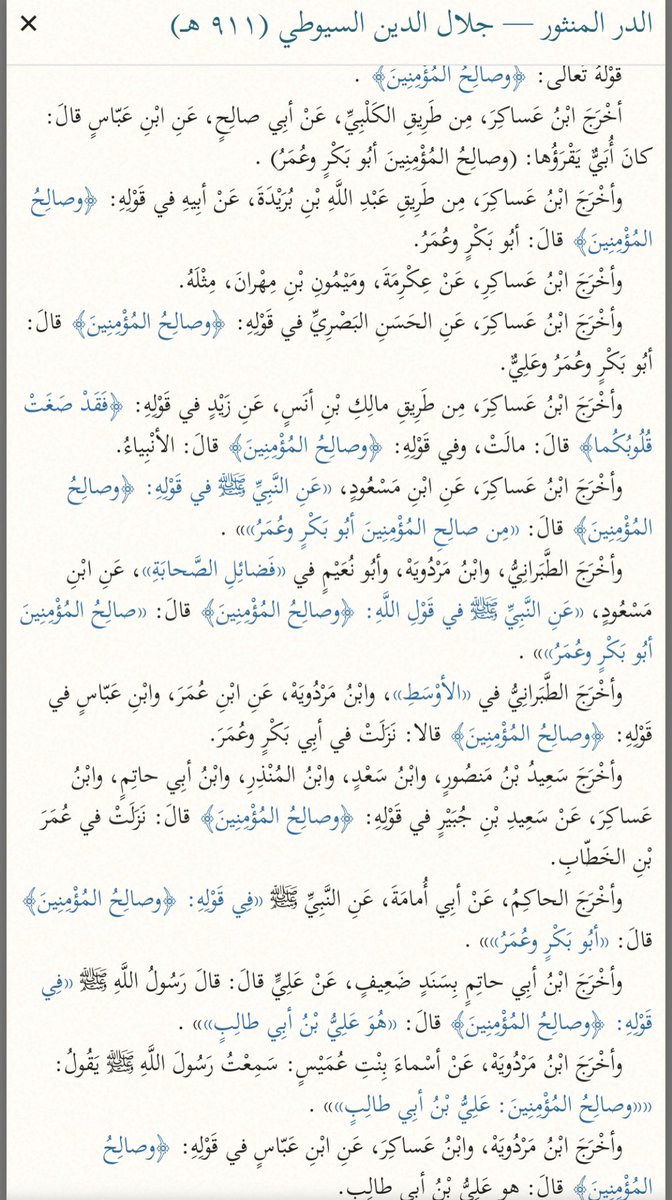 الدر المنثور — جلال الدين السيوطي (٩١١ هـ)
×
قَوْلُهُ تَعالى: ﴿وصالِحُ المُؤْمِنِينَ﴾ .
أخْرَجَ ابْنُ عَساكِرَ، مِن طَرِيقِ الكَلْبِيِّ، عَنْ أبِي صالِحٍ، عَنِ ابْنِ عَبّاسٍ قالَ:
كانَ أُبَيٌّ يَقْرَؤُها: (وصالِحُ المُؤْمِنِينَ أبُو بَكْرٍ وعُمَرُ) .
وأخْرَجَ ابْنُ عَساكِرَ، مِن طَرِيقِ عَبْدِ اللَّهِ بْنِ بُرَيْدَةَ، عَنْ أبِيهِ في قَوْلِهِ: ﴿وصالِحُ
المُؤْمِنِينَ﴾ قالَ: أبُو بَكْرٍ وعُمَرُ.
وأخْرَجَ ابْنُ عَساكِرِ، عَنْ عِكْرِمَةَ، ومَيْمُونِ بْنِ مِهْرانَ، مِثْلَهُ.
وأخْرَجَ ابْنُ عَساكِرَ، عَنِ الحَسَنِ البَصْرِيِّ في قَوْلِهِ: ﴿وصالِحُ المُؤْمِنِينَ﴾ قالَ:
أبُو بَكْرٍ وعُمَرُ وعَلِيٌّ.
وأخْرَجَ ابْنُ عَساكِرَ، مِن طَرِيقِ مالِكِ بْنِ أنَسٍ، عَنِ زَيْدٍ في قَوْلِهِ: ﴿فَقَدْ صَغَتْ
قُلُوبُكُما﴾ قالَ: مالَتْ، وفي قَوْلِهِ: ﴿وصالِحُ المُؤْمِنِينَ﴾ قالَ: الأنْبِياءُ.
وأخْرَجَ ابْنُ عَساكِرَ، عَنِ ابْنِ مَسْعُودٍ، «عَنِ النَّبِيِّ ﷺ في قَوْلِهِ: ﴿وصالِحُ
المُؤْمِنِينَ﴾ قالَ: «مِن صالِحِ المُؤْمِنِينَ أبُو بَكْرٍ وعُمَرُ»» .
وأخْرَجَ الطَّبَرانِيُّ، وابْنُ مَرْدُويَهْ، وأبُو نُعَيْمٍ في «فَضائِلِ الصَّحابَةِ»، عَنِ ابْنِ
مَسْعُودٍ، «عَنِ النَّبِيِّ ﷺ في قَوْلِ اللَّهِ: ﴿وصالِحُ المُؤْمِنِينَ﴾ قالَ: «صالِحُ المُؤْمِنِينَ
أبُو بَكْرٍ وعُمَرُ»» .
وأخْرَجَ الطَّبَرانِيُّ في «الأوْسَطِ»، وابْنُ مَرْدُويَهْ، عَنِ ابْنِ عُمَرَ، وابْنِ عَبّاسٍ في
قَوْلِهِ: ﴿وصالِحُ المُؤْمِنِينَ﴾ قالا: نَزَلَتْ في أبِي بَكْرٍ وعُمَرَ.
وأخْرَجَ سَعِيدُ بْنُ مَنصُورٍ، وابْنُ سَعْدٍ، وابْنُ المُنْذِرِ، وابْنُ أبِي حاتِمٍ، وابْنُ
عَساكِرَ، عَنْ سَعِيدِ بْنِ جُبَيْرٍ في قَوْلِهِ: ﴿وصالِحُ المُؤْمِنِينَ﴾ قالَ: نَزَلَتْ في عُمَرَ
بْنِ الخَطّابِ.
وأخْرَجَ الحاكِمُ، عَنْ أبِي أُمامَةَ، عَنِ النَّبِيِّ ﷺ «فِي قَوْلِهِ: ﴿وصالِحُ المُؤْمِنِينَ﴾
قالَ: «أبُو بَكْرٍ وعُمَرُ»» .
وأخْرَجَ ابْنُ أبِي حاتِمٍ بِسَنَدٍ ضَعِيفٍ، عَنْ عَلِيٍّ قالَ: قالَ رَسُولُ اللَّهِ ﷺ «فِي
قَوْلِهِ: ﴿وصالِحُ المُؤْمِنِينَ﴾ قالَ: «هُوَ عَلِيُّ بْنُ أبِي طالِبٍ»» .
وأخْرَجَ ابْنُ مَرْدُويَهْ، عَنْ أسْماءَ بِنْتِ عُمَيْسٍ: سَمِعْتُ رَسُولَ اللَّهِ ﷺ يَقُولُ:
««وصالِحُ المُؤْمِنِينَ: عَلِيُّ بْنُ أبِي طالِبٍ»» .
وأخْرَجَ ابْنُ مَرْدُويَهْ، وابْنُ عَساكِرَ، عَنِ ابْنِ عَبّاسٍ في قَوْلِهِ: ﴿وصالِحُ
المُؤْمِنِينَ﴾ قالَ: هو عَلِيُّ بْنُ أبِي طالِبٍ.